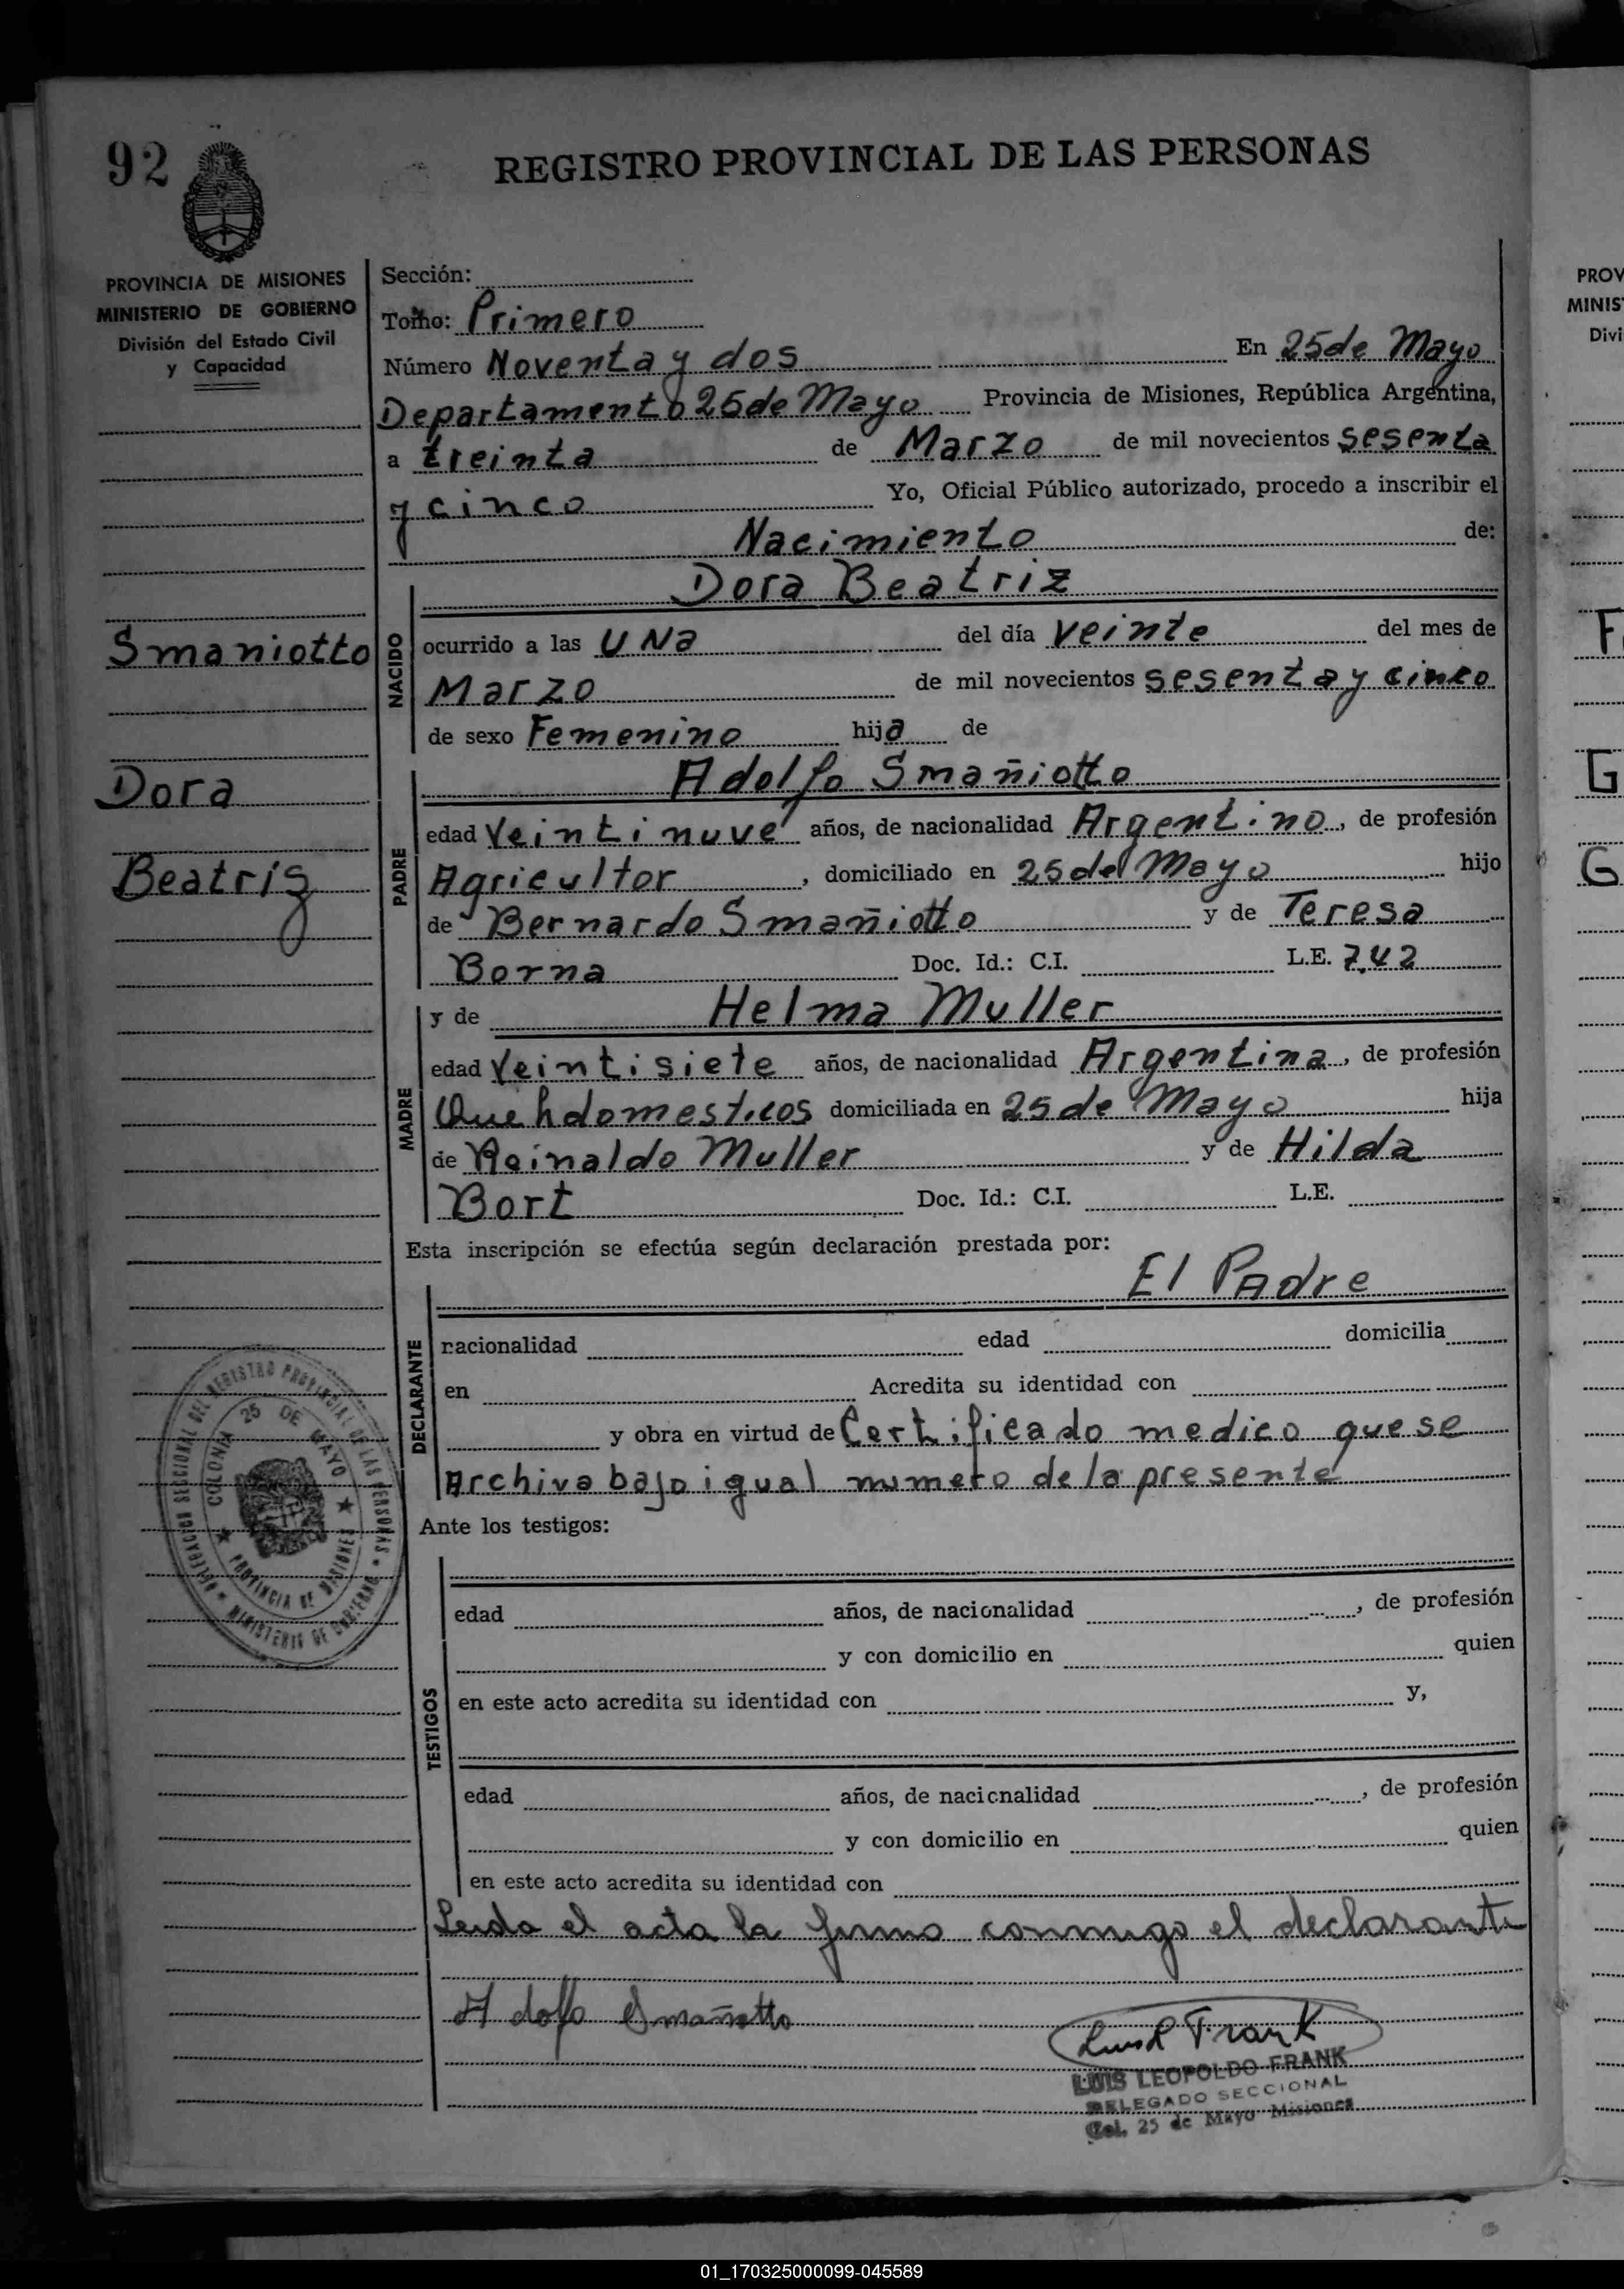 92
REGISTRO PROVINCIAL DE LAS PERSONAS
PROVINCIA DE MISIONES
MINISTERIO DE GOBIERNO
División del Estado Civil
y Capacidad
Smaniotto
Dora
Beatriz
Sección:
Tomo: Primero
Número Noventa y dos En 25 de Mayo
Departamento 25 de Mayo Provincia de Misiones, República Argentina,
a treinta de Marzo de mil novecientos sesenta
y cinco Yo, Oficial Público autorizado, procedo a inscribir el
Nacimiento de:
Dora Beatriz
NACIDO
ocurrido a las UNa del día veinte del mes de
Marzo de mil novecientos sesenta y cinco
de sexo Femenino hija de
Adolfo Smañiotto
PADRE
edad Veintinuve años, de nacionalidad Argentino, de profesión
Agricultor, domiciliado en 25 del Mayo hijo
de Bernardo Smañiotto y de Teresa
Borna Doc. Id.: C.I. L.E. 7.42
y de Helma Muller
MADRE
edad Veintisiete años, de nacionalidad Argentina, de profesión
Queh domesticos domiciliada en 25 de Mayo hija
de Reinaldo Muller y de Hilda
Bort Doc. Id.: C.I. L.E.
Esta inscripción se efectúa según declaración prestada por:
El Padre
DECLARANTE
nacionalidad edad domicilia
en Acredita su identidad con
y obra en virtud de Certificado medico que se
Archiva bajo igual numero de la presente
Ante los testigos:
TESTIGOS
edad años, de nacionalidad , de profesión
y con domicilio en quien
en este acto acredita su identidad con y,
edad años, de nacionalidad , de profesión
y con domicilio en quien
en este acto acredita su identidad con
Leida el acta la firma conmigo el declarante
Adolfo Smañotto
Luis L Frank
LUIS LEOPOLDO FRANK
DELEGADO SECCIONAL
Col. 25 de Mayo Misiones
DELEGACION SECCIONAL DEL REGISTRO PROVINCIAL DE LAS PERSONAS * MINISTERIO DE GOBIERNO *
COLONIA 25 DE MAYO ★ PROVINCIA DE MISIONES ★
PROV
MINIS
Divi
F
G
G
01_170325000099-045589